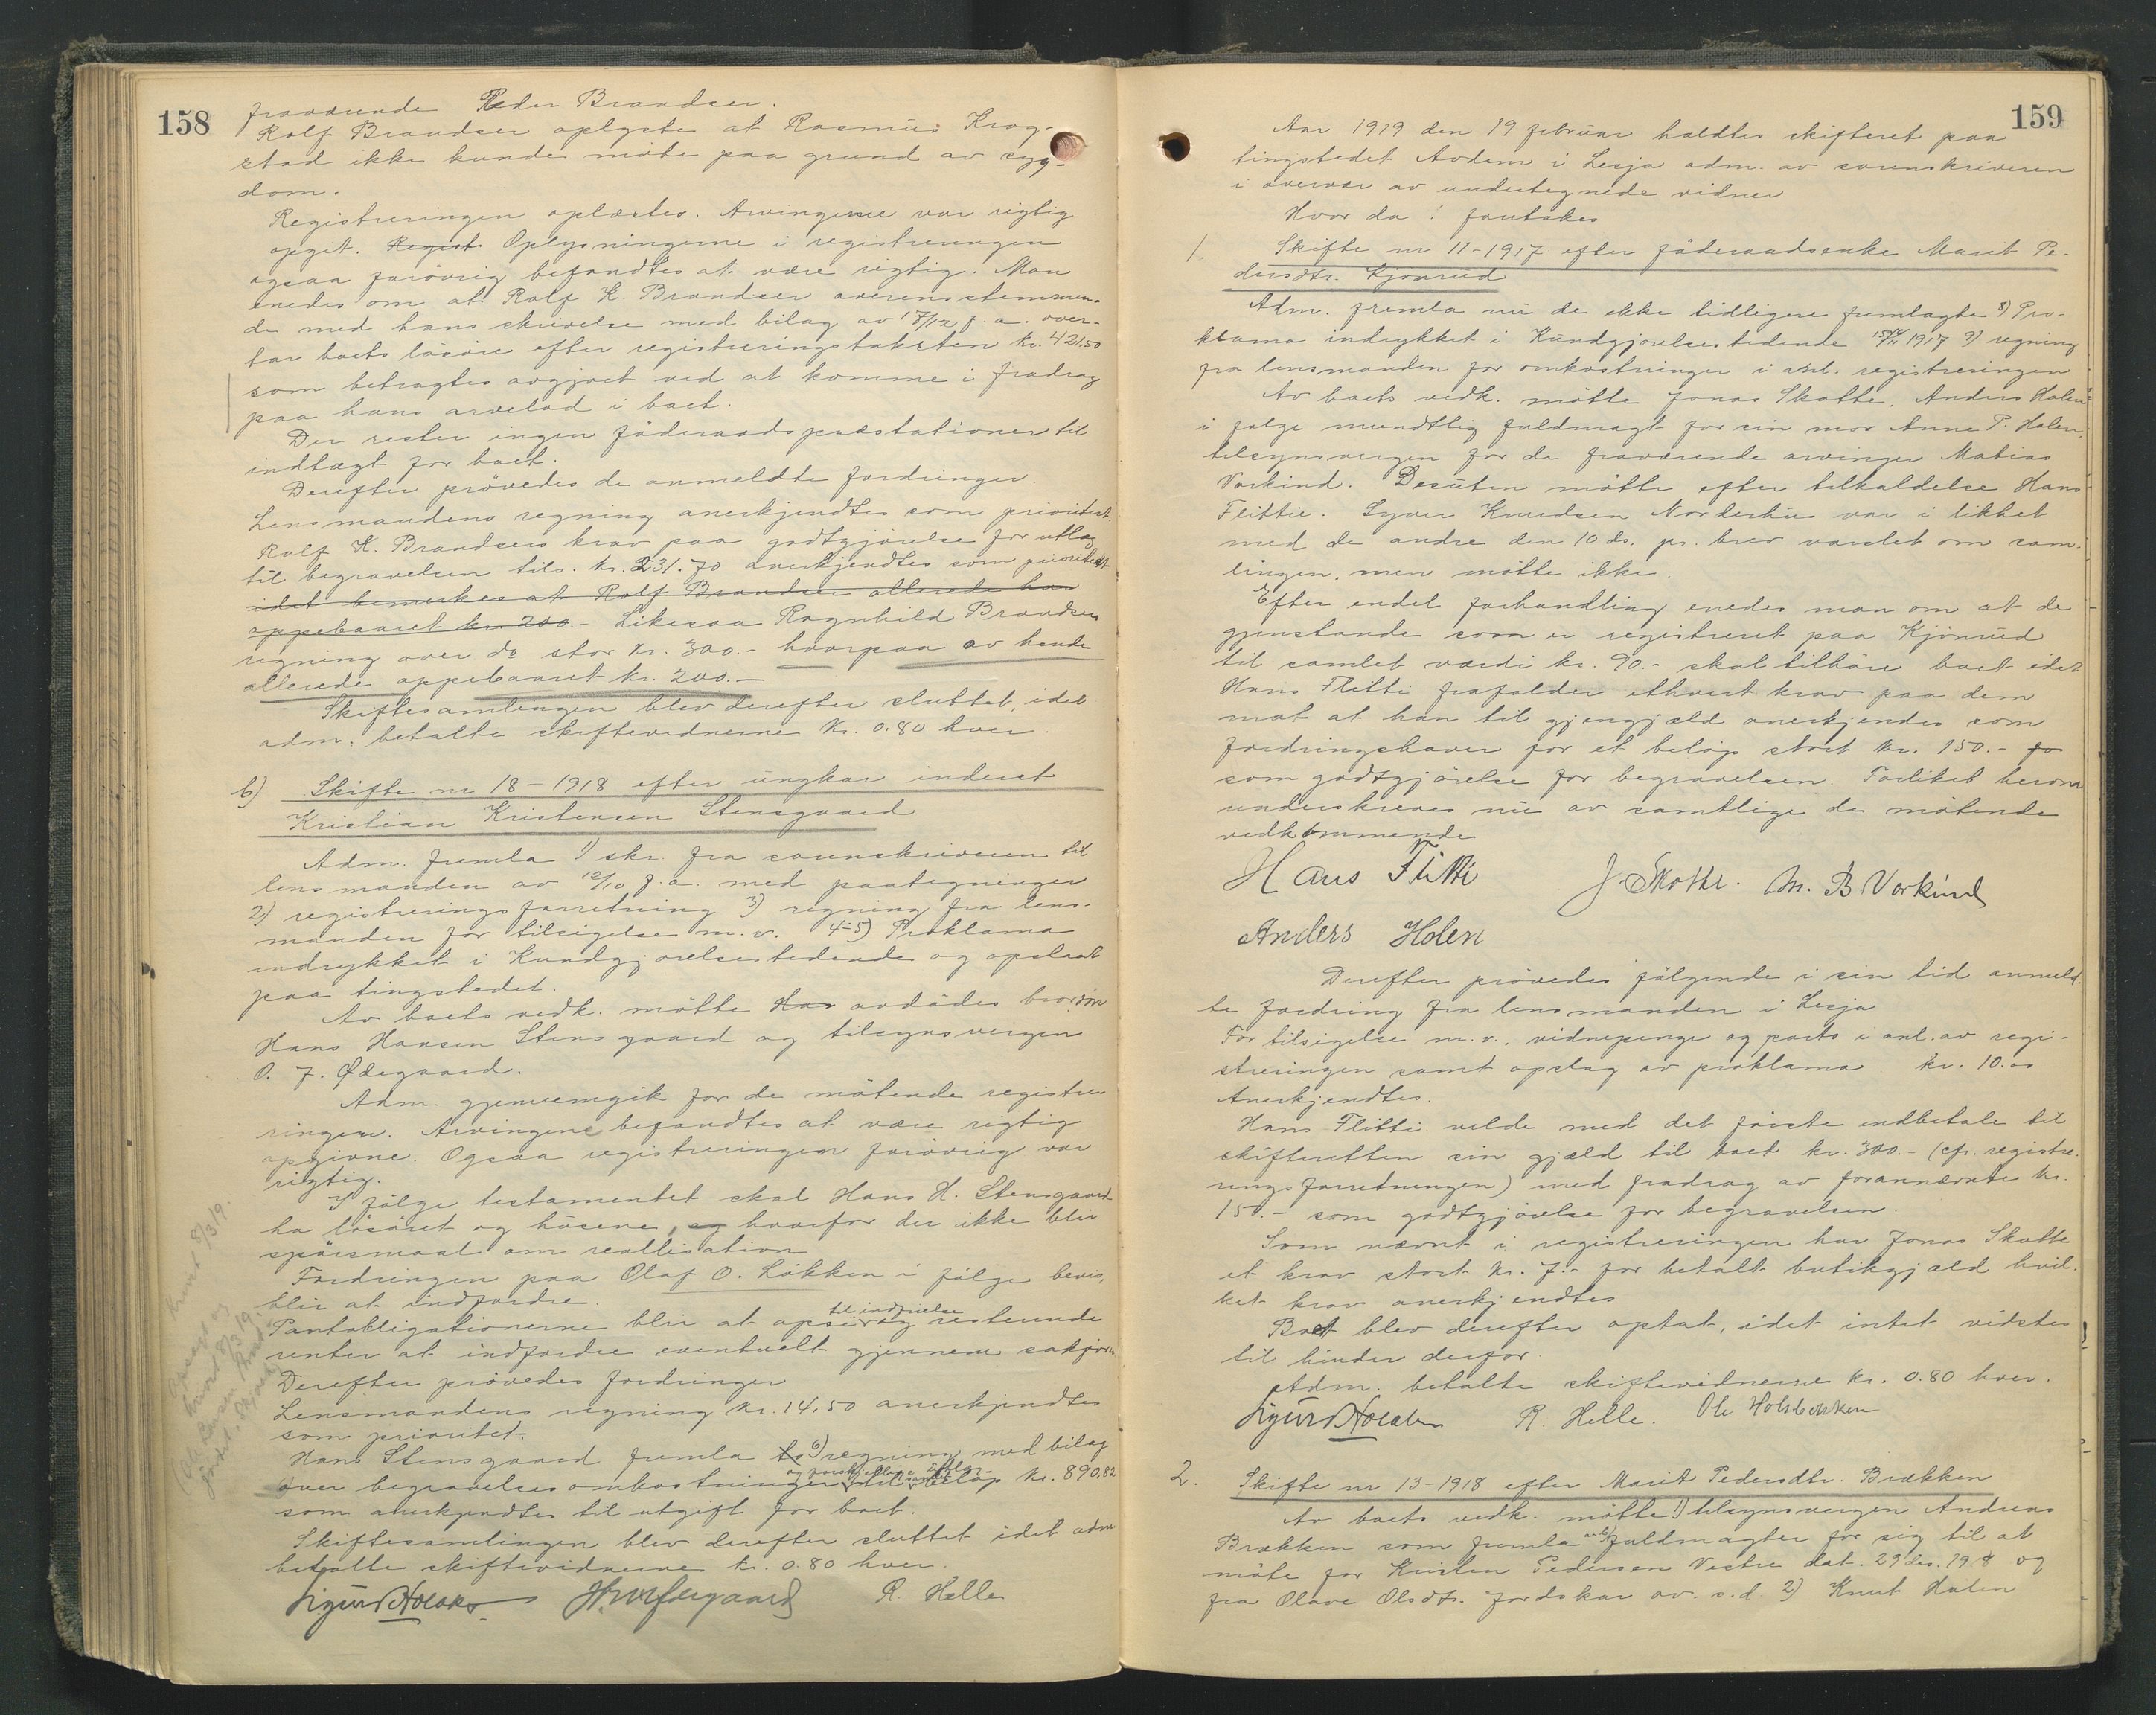 158
fraværende Peder Brandser.
Rolf Brandser oplyste at Rasmus Krog-
stad ikke kunde møte paa grund av syg-
dom.
Registreringen oplæstes. Arvingerne var rigtig
opgit. Regist Oplysningerne i registreringen
ogsaa forøvrig befandtes at være rigtig. Man
enedes om at Rolf K. Brandser overensstemmen-
de med hans skrivelse med bilag av 17/12 f. a. over-
tar boets løsøre efter registreringstaksten kr. 421,50
som betragtes avgjort ved at komme i fradrag
paa hans arvelod i boet.
Der rester ingen føderaadspræstationer til
indtægt for boet.
Derefter prøvedes de anmeldte fordringer.
Lensmandens regning anerkjendtes som prioritert.
Rolf K. Brandsers krav paa godtgjørelse for utlæg
til begravelsen tils. kr. 231.70 anerkjendtes som prioritert
idet bemerkes at Rolf Brandser allerede har
oppebaaret kr. 200.- Likesaa Ragnhild Brandsers
regning over do stor kr. 300.- hvorpaa av hende
allerede oppebaaret kr. 200.-
Skiftesamlingen blev derefter sluttet, idet
adm. betalte skiftevidnerne kr. 0.80 hver.
6) Skifte nr 18-1918 efter ungkar inderst
Kristian Kristensen Stensgaard
Adm. fremla 1) skr. fra sorenskriveren til
lensmanden av 12/10 f.a. med paategninger
2) registreringsforretning 3) regning fra lens-
manden for tilsigelse m.v. 4-5) Proklama
indrykket i Kundgjørelsestidende og opslaat
paa tingstedet.
Av boets vedk. møtte Han avdødes brorsøn
Hans Hansen Stensgaard og tilsynsvergen
O. J. Ødegaard.
Adm. gjennemgik for de møtende registre-
ringen. Arvingene befandtes at være rigtig
opgivne. Ogsaa registreringen forøvrig var
rigtig.
I følge testamentet skal Hans H. Stensgaard
ha løsøret og husene, og hvorfor der ikke blir
spørsmaal om reallisation
Fordringen paa Olaf O. Løkken i følge bevis,
blir at indfordre.
Pantobligationerne blir at opsi til indfrielse og resterende
renter at indfordre eventuelt gjennem sakfører
Derefter prøvedes fordringer
Lensmandens regning kr. 14,50 anerkjendtes
som prioritet.
Hans Stensgaard fremla 6) regning med bilag
over begravelsesomkostninger og forskjellige utlæg til samlet beløp kr. 890,82
som anerkjendtes til utgift for boet.
Skiftesamlingen blev derefter sluttet idet adm
betalte skiftevidnerne kr. 0.80 hver.
R. Helle
159
Aar 1919 den 19 februar holdtes skifteret paa
tingstedet Avdem i Lesja adm. av sorenskriveren
i overvær av undertegnede vidner
Hvor da! foretokes
1. Skifte nr 11-1917 efter føderaadsenke Marit Pe-
dersdtr. Kjønrud
Adm. fremla nu de ikke tidligere fremlagte 8) Pro-
klama indrykket i Kundgjørelsestidende 1917 9) regning
fra lensmanden for omkostninger i anl. registreringen
Av boets vedk. møtte Jonas Skotte, Anders Holen
i følge mundtlig fuldmagt for sin mor Anne P. Holen,
tilsynsvergen for de fraværende arvinger Matias
Vorkind. Desuten møtte efter tilkaldelse Hans
Flittie. Syver Knudsen Norderhus var i likhet
med de andre den 10 ds. pr. brev varslet om sam-
lingen, men møtte ikke.
Efter endel forhandling enedes man om at de
gjenstande som er registreret paa Kjønrud
til samlet værdi kr. 90.- skal tilhøre boet idet
Hans Flitti frafalder ethvert krav paa dem
mot at han til gjengjæld anerkjendes som
fordringshaver for et beløp stort kr. 150.- fo
som godtgjørelse for begravelsen. Forliket herom
underskreves nu av samtlige de møtende
vedkommende
Hans Flitti J. Skotte. M. B Vorkind
Anders Holen
Derefter prøvedes følgende i sin tid anmeld-
te fordring fra lensmanden i Lesja
For tilsigelse m.v., vidnepenge og porto i anl. av regi-
streringen samt opslag av proklama kr. 10.00
Anerkjendtes.
Hans Flitti vilde med det første indbetale til
skifteretten sin gjæld til boet kr. 300.- (cfr. registre-
ringsforretningen) med fradrag av forannævnte kr.
150.- som godtgjørelse for begravelsen.
Som nævnt i registreringen har Jonas Skotte
et krav stort kr. 7.- for betalt butikgjæld hvil-
ket krav anerkjendtes
Boet blev derefter optat, idet intet vidstes
til hinder derfor.
Adm. betalte skiftevidnerne kr. 0.80 hver.
R. Helle. Ole Holsbekken
2. Skifte nr 13-1918 efter Marit Pedersdtr. Brækken
Av boets vedk. møtte 1) tilsynsvergen Andreas
Brækken som fremla fuldmagter for sig til at
møte for Kristen Pedersen Vestre dat. 29 des. 1918 og
fra Olave Olsdtr. Jordskar av. s.d. 2) Knut Holen